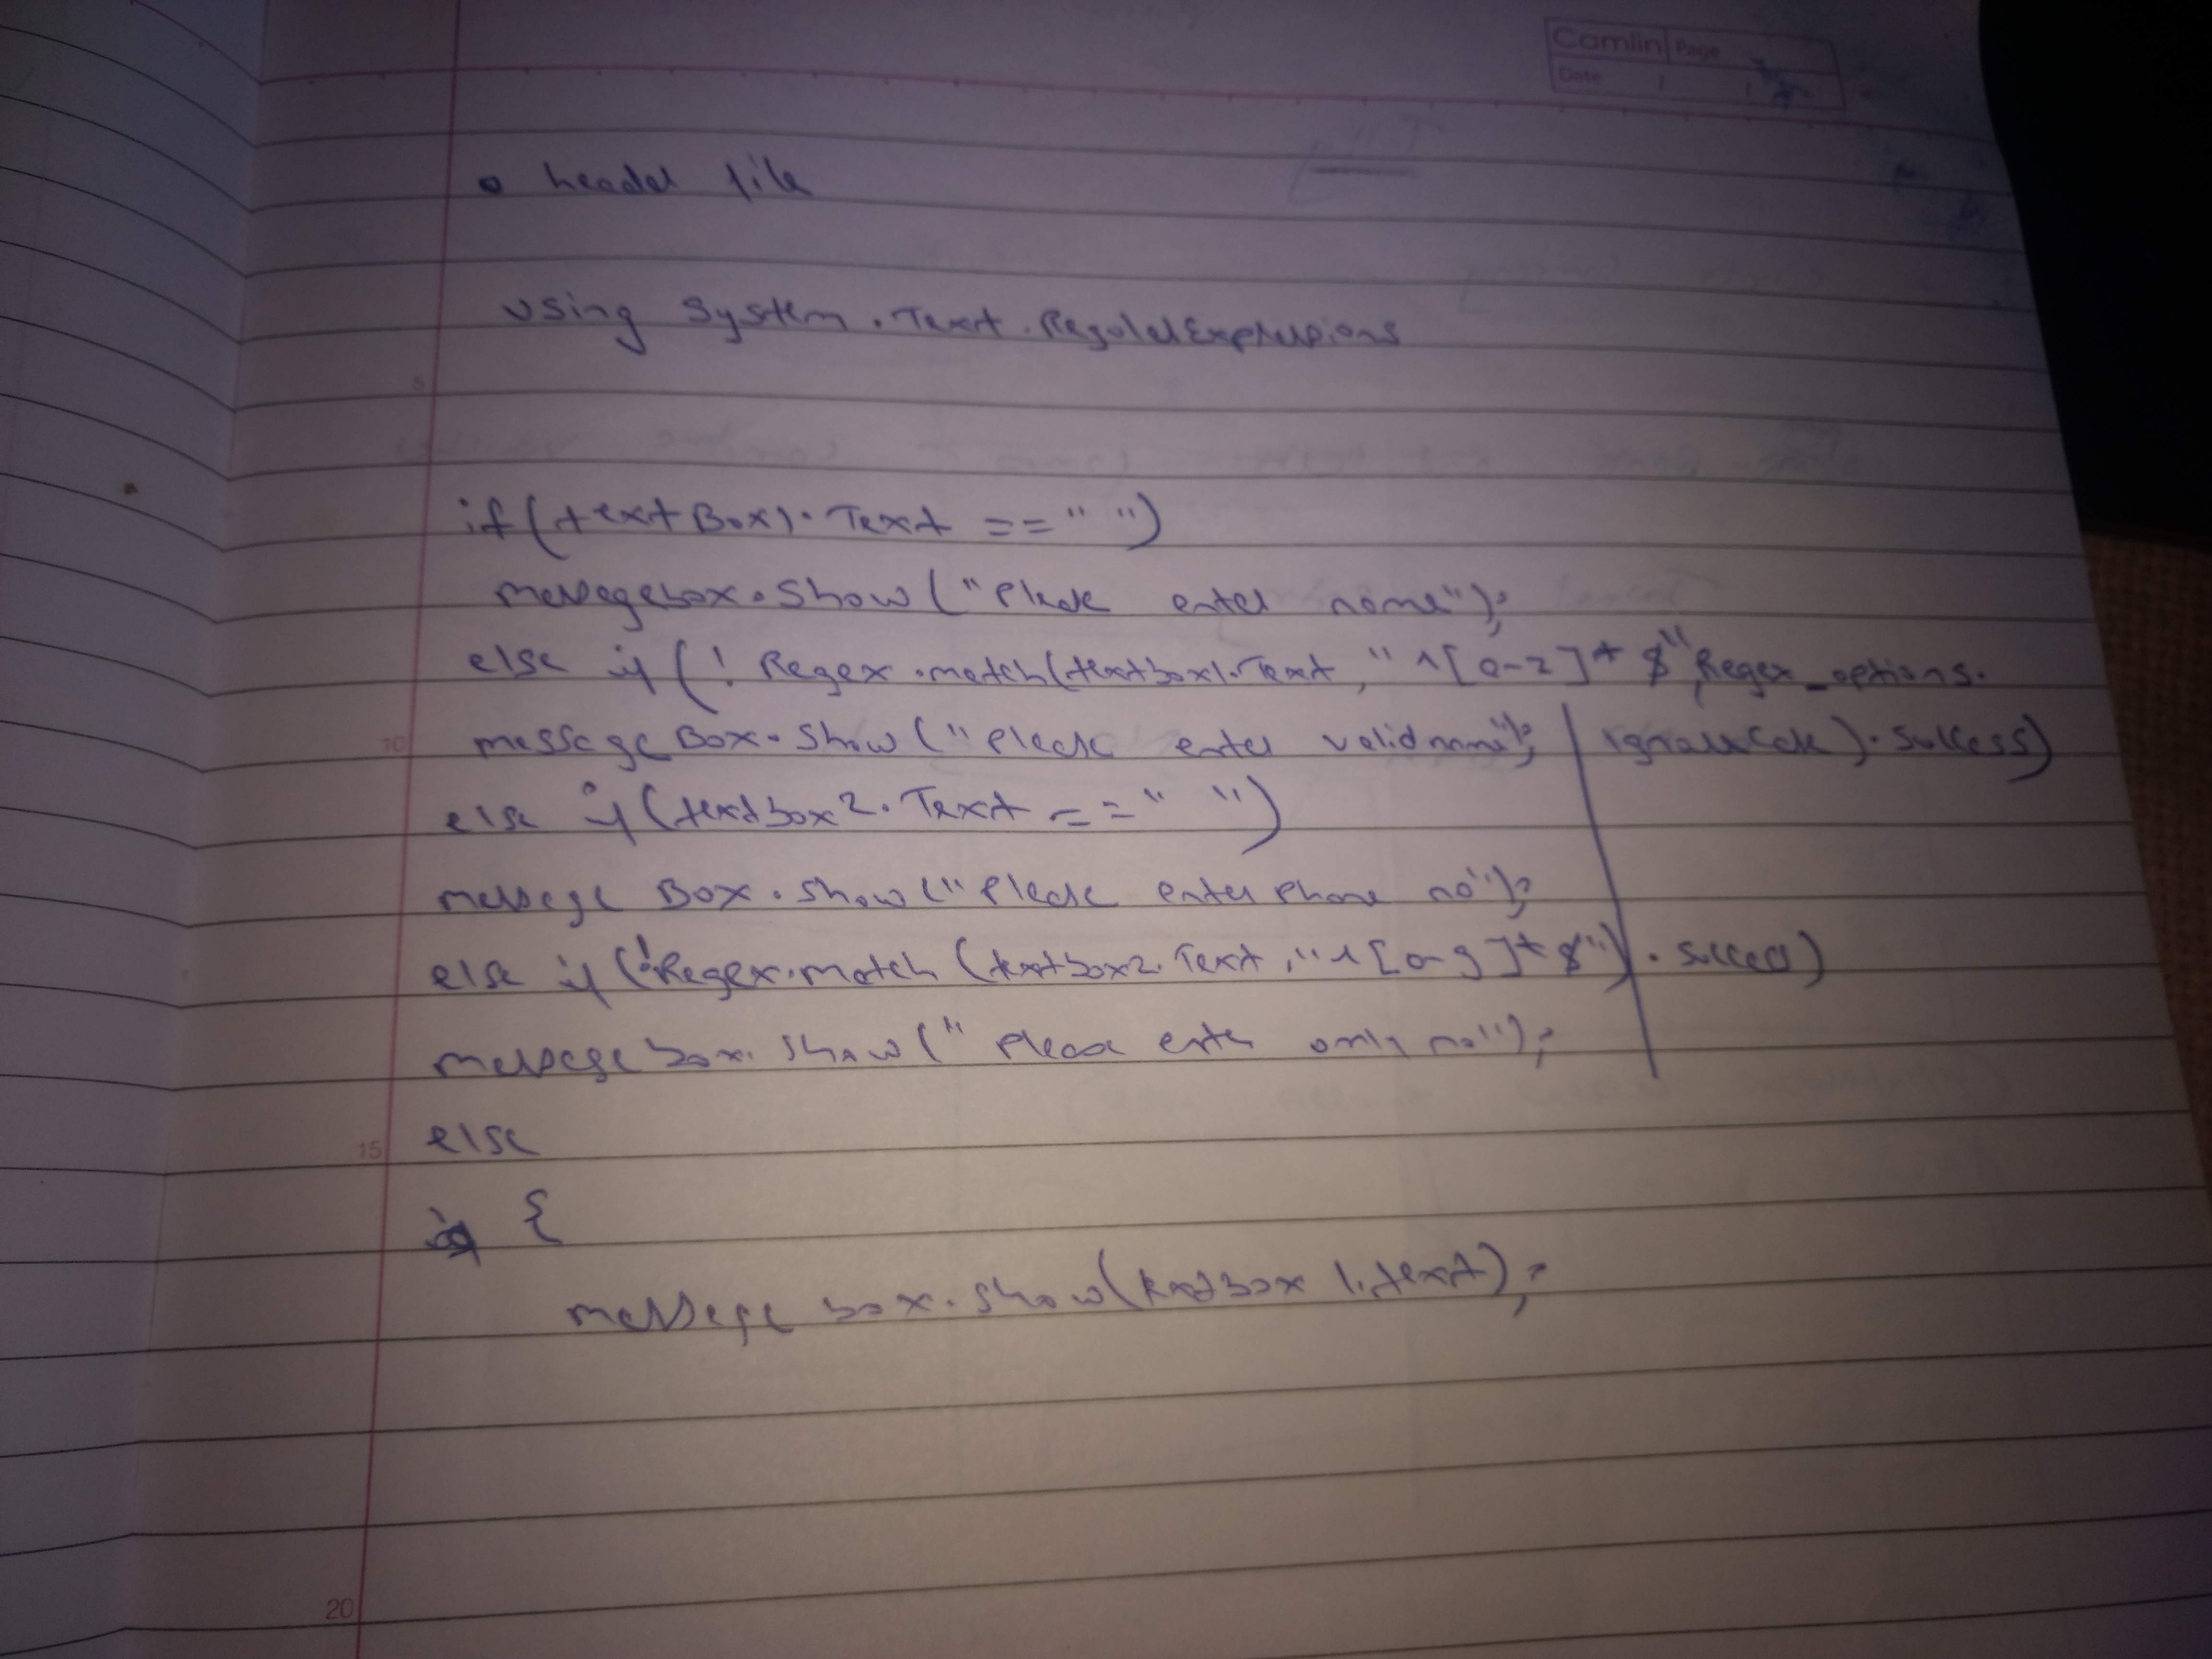 Camlin Page
Date / /
header file
using System.Text.RegularExpressions
5
if(textBox1.Text == " ")
messagebox.show("Please enter name");
else if(! Regex.match(textbox1.Text, "^[a-z]*$",Regex_options.
10 message Box.show("Please enter valid name"); ignoreCase).success)
else if(textbox2.Text == " ")
message Box.show("Please enter phone no");
else if(!Regex.match(textbox2.Text,"^[0-9]*$").success)
message box.show("Please enter only no");
15 else
{
message box.show(textbox 1.text);
20